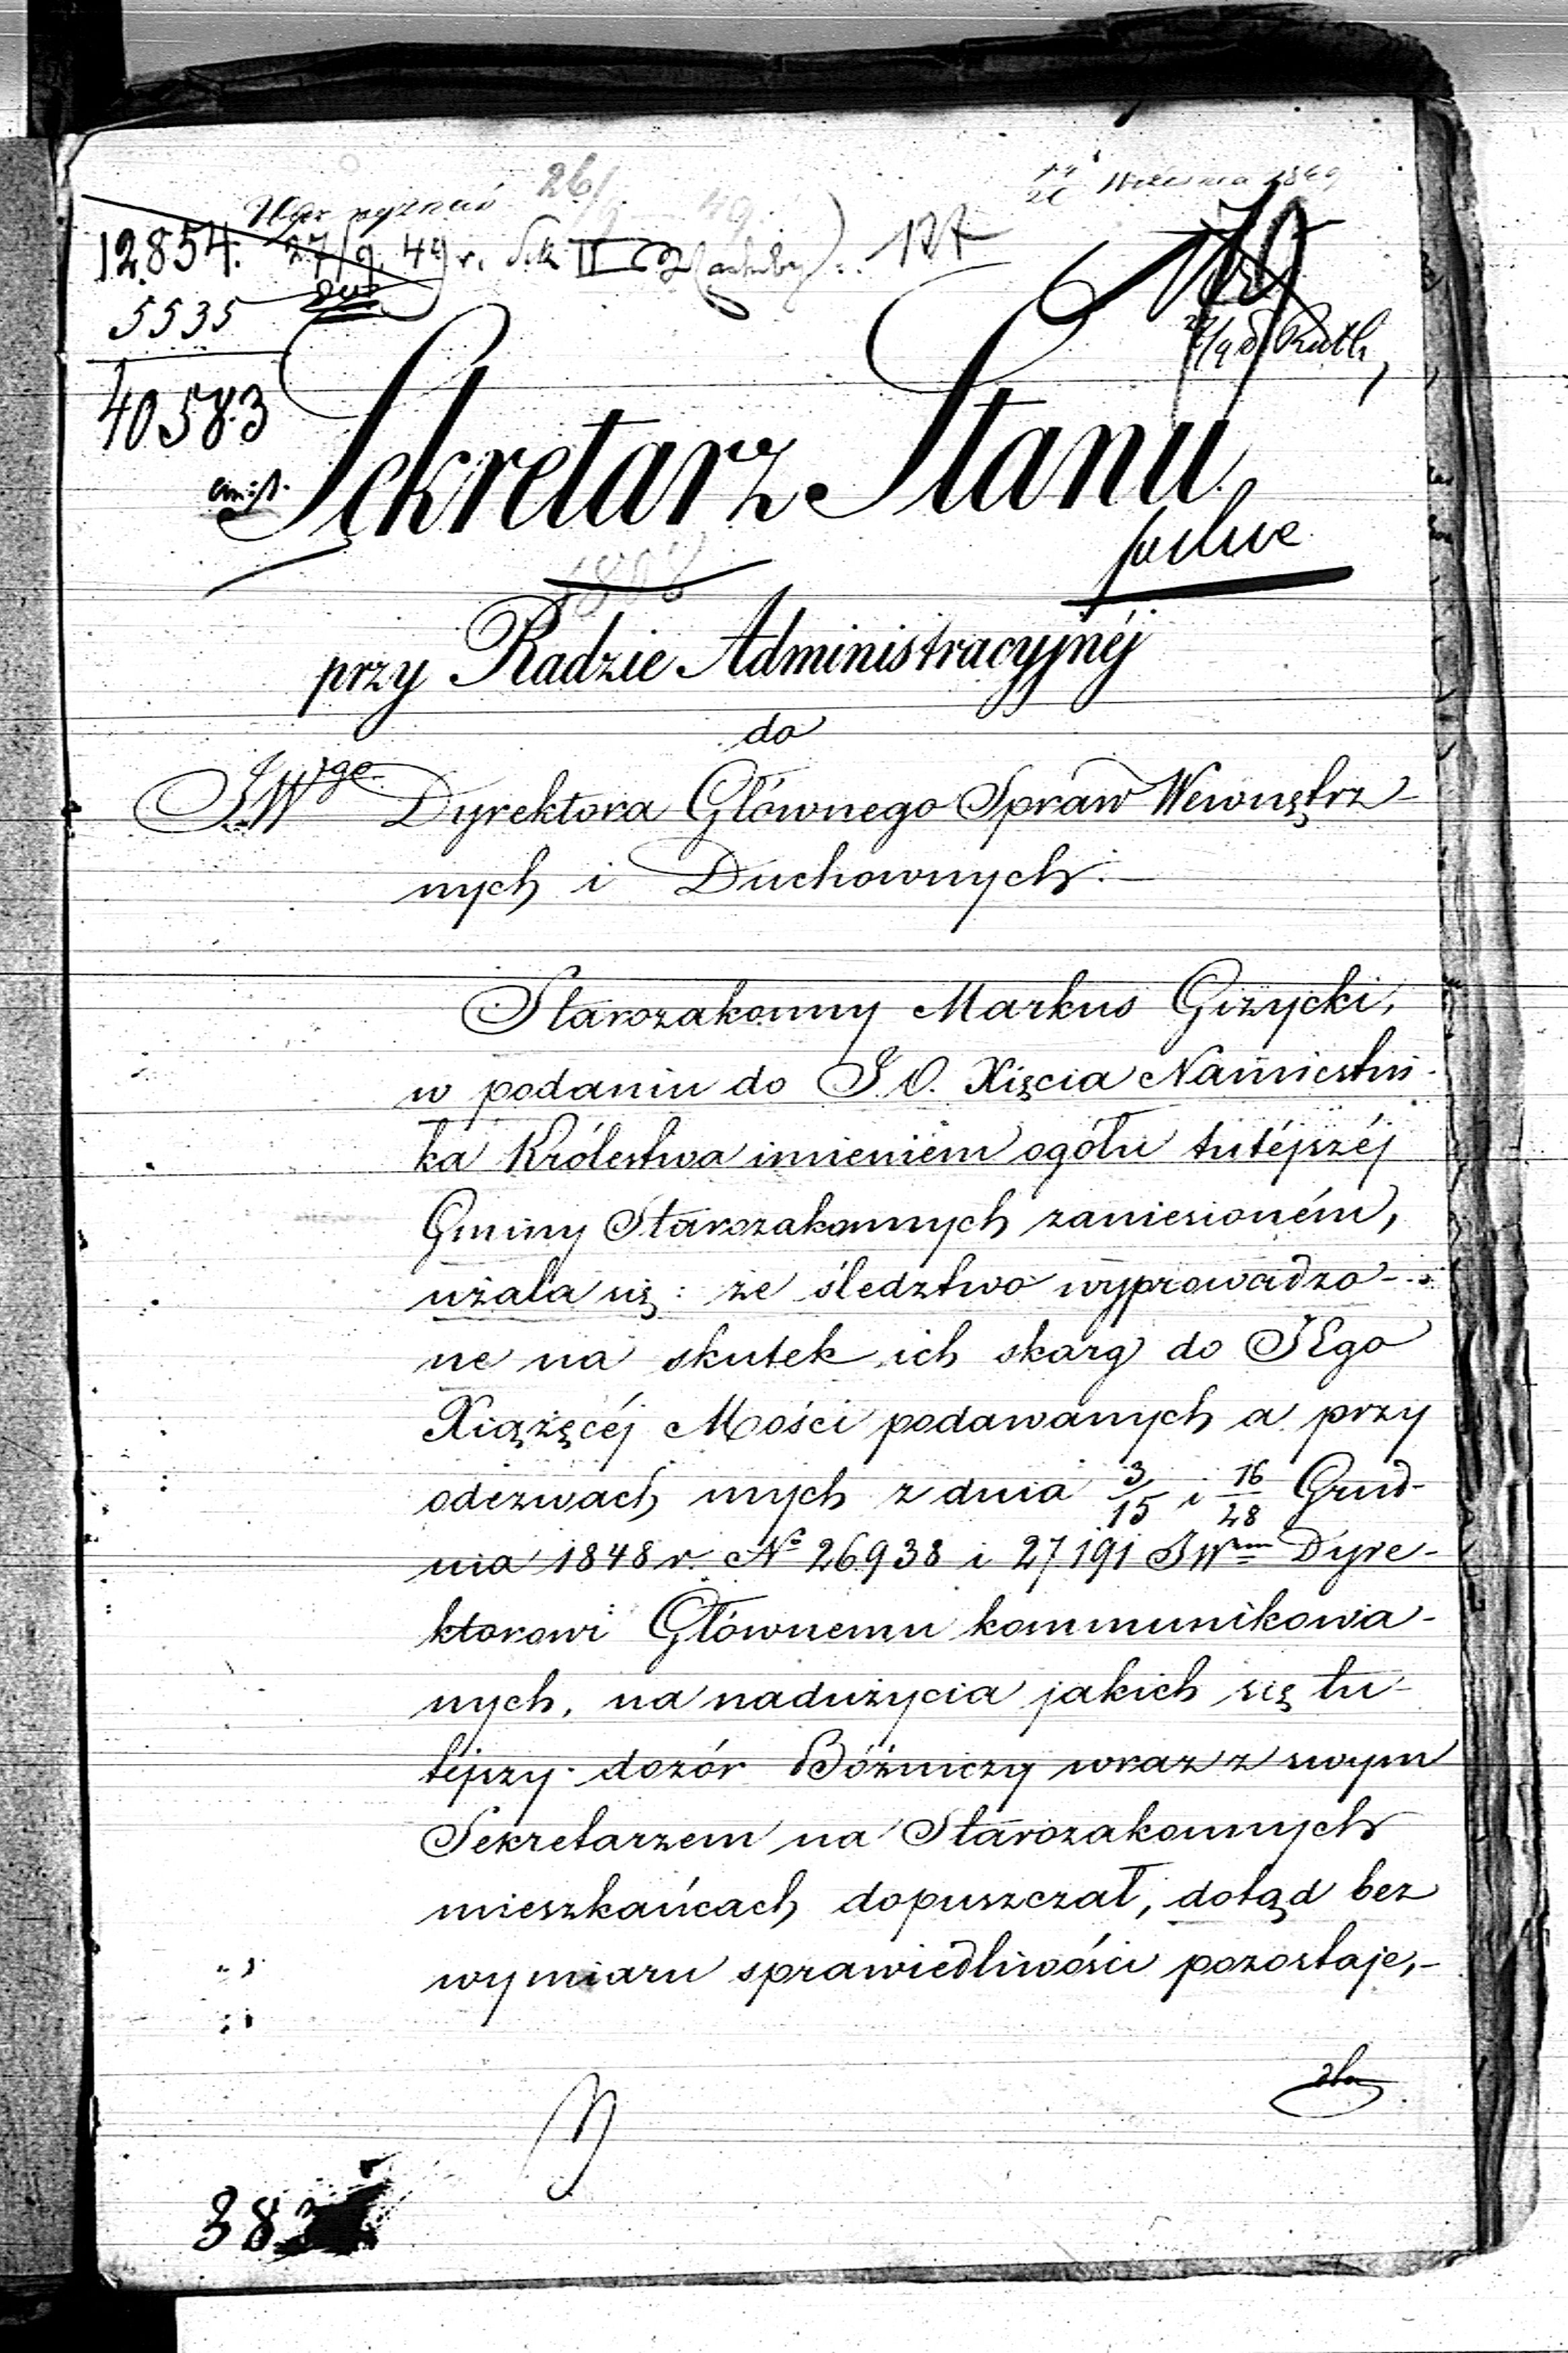 26/9 49
Września 1849
12854. 27/9 49 r.
5535
177
40583
Sekretarz Stanu
pilne
przy Radzie Administracyjnéj
do
JWgo Dyrektora Głównego Spraw Wewnętrz-
nych i Duchownych.
Starozakonny Markus Giżycki,
w podaniu do J.O. Xięcia Namiestni-
ka Królestwa imieniem ogółu tutéjszéj
Gminy Starozakonnych zaniesioném,
użala się: że śledztwo wyprowadzo-
ne na skutek ich skarg do JEgo
Xiążęcéj Mości podawanych a przy
odezwach mych z dnia 3/15 i 16/28 Grud-
nia 1848 r. No 26938 i 27191 JWmu Dyre-
ktorowi Głównemu kommunikowa-
nych, na nadużycia jakich się tu-
tejszy dozór Bóżniczy wraz z swym
Sekretarzem na Starozakonnych
mieszkańcach dopuszczał, dotąd bez
wymiaru sprawiedliwości pozostaje,-